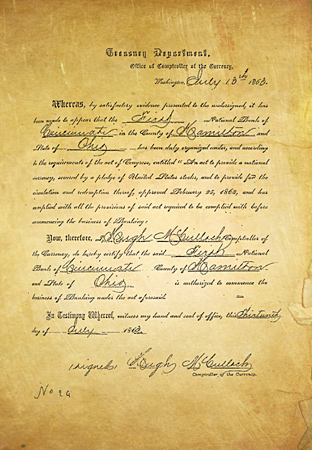 Treasury Department,
Office of Comptroller of the Currency,
Washington, July 13th 1863.
Whereas, by satisfactory evidence presented to the undersigned, it has
been made to appear that the First National Bank of
Cincinnati in the County of Hamilton and
State of Ohio has been duly organized under, and according
to the requirements of the act of Congress, entitled "An act to provide a national
currency, secured by a pledge of United States stocks, and to provide for the
circulation and redemption thereof, approved February 25, 1863, and has
complied with all the provisions of said act required to be complied with before
commencing the business of Banking:
Now, therefore, I Hugh McCulloch Comptroller of
the Currency, do hereby certify that the said First National
Bank of Cincinnati County of Hamilton
and State of Ohio is authorized to commence the
business of Banking under the act aforesaid.
In Testimony Whereof, witness my hand and seal of office, this Thirteenth
day of July 1863.
(signed) Hugh McCulloch
Comptroller of the Currency.
No 24